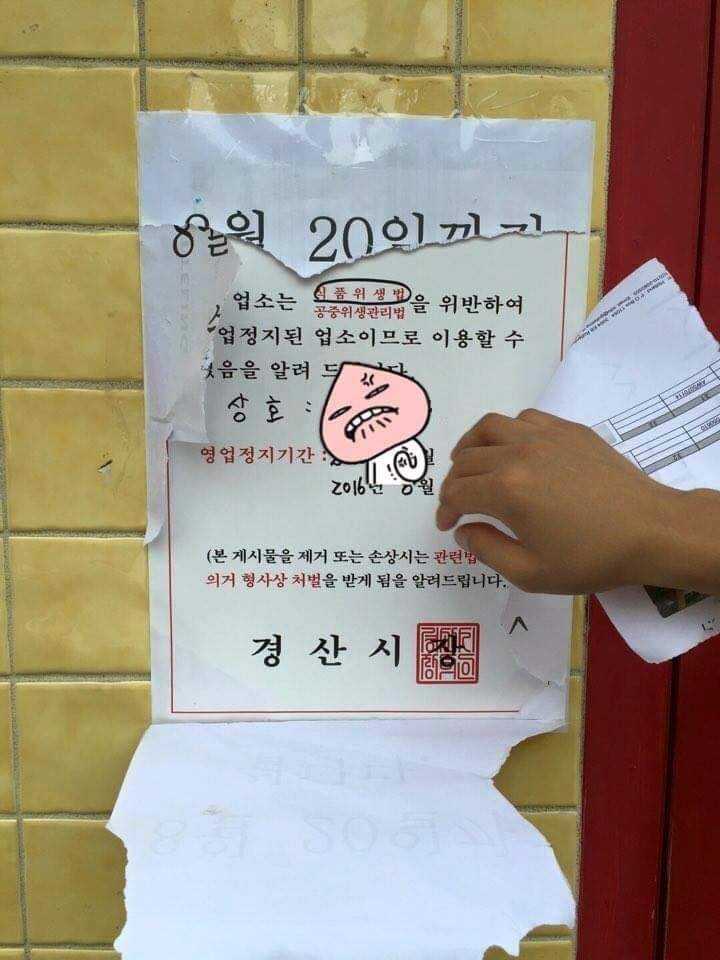 8월 20일까지
업소는 식품위생법 을 위반하여
공중위생관리법
업정지된 업소이므로 이용할 수
음을 알려 드
상 호 :
영업정지기간 :
2016년 월
(본 게시물을 제거 또는 손상시는 관련법
의거 형사상 처벌을 받게 됨을 알려드립니다.
경 산 시 장